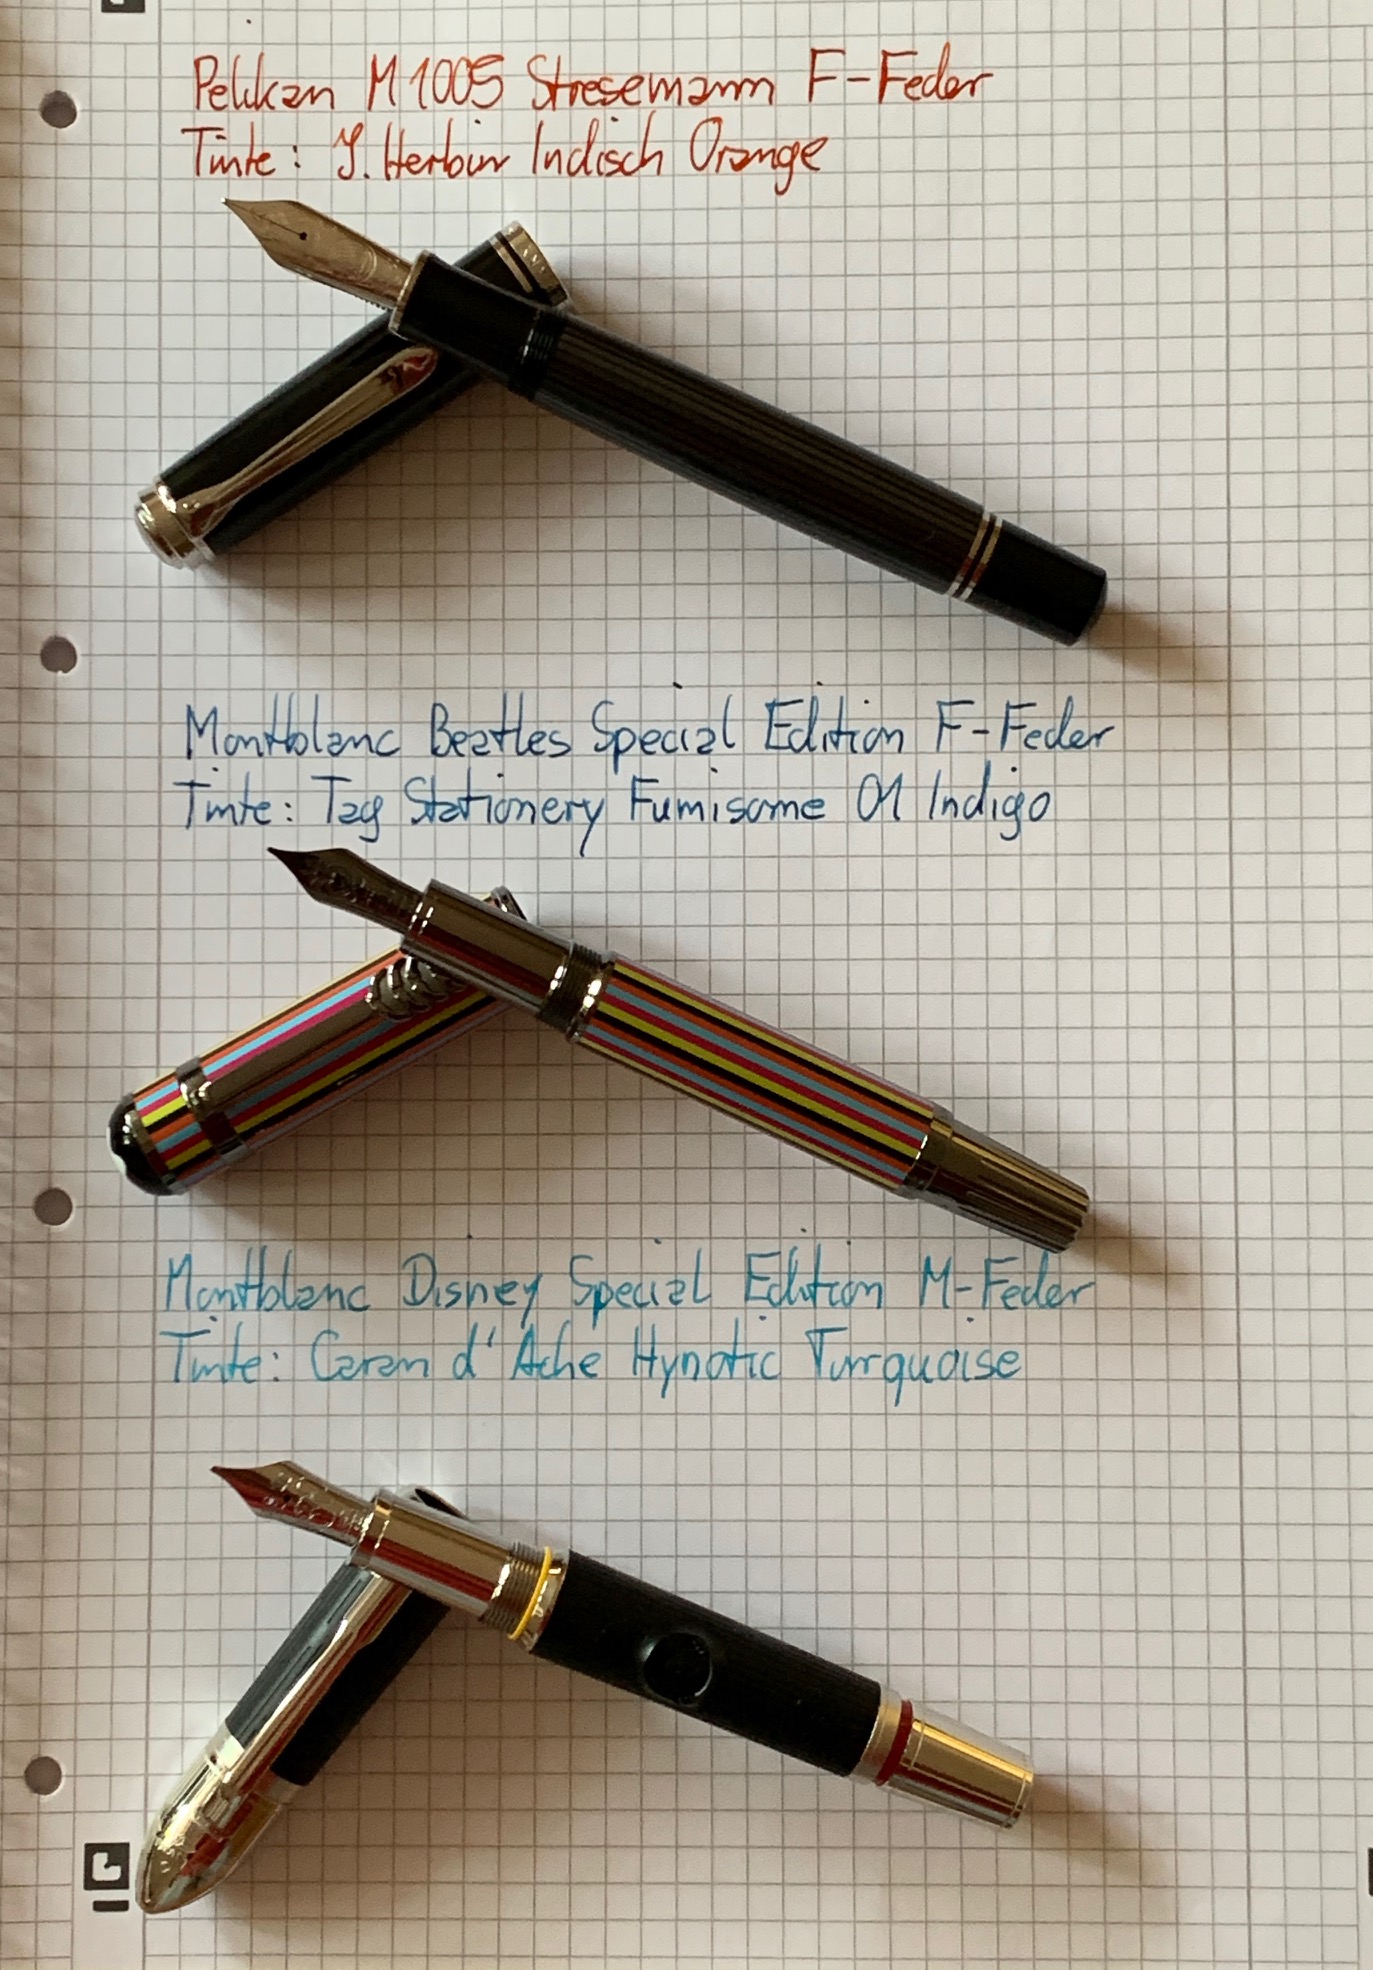 Pelikan M1005 Stresemann F-Feder
Tinte: J. Herbin Indisch Orange
Montblanc Beatles Special Edition F-Feder
Tinte: Tag Stationery Fumisome 01 Indigo
Montblanc Disney Special Edition M-Feder
Tinte: Caran d'Ache Hynotic Turquoise